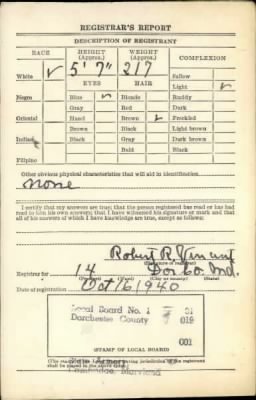 REGISTRAR'S REPORT
DESCRIPTION OF REGISTRANT
RACE HEIGHT (Approx.) WEIGHT (Approx.) COMPLEXION
White ✓ 5' 7" 217 Sallow
EYES HAIR Light ✓
Negro Blue ✓ Blonde Ruddy
Gray Red Dark
Oriental Hazel Brown ✓ Freckled
Brown Black Light brown
Indian Black Gray Dark brown
Bald Black
Filipino
Other obvious physical characteristics that will aid in identification
None
I certify that my answers are true; that the person registered has read or has had
read to him his own answers; that I have witnessed his signature or mark and that
all of his answers of which I have knowledge are true, except as follows:
Robert R. Vincent
(Signature of registrar)
Registrar for 14 Dor. Co. Md.
Date of registration Oct 16, 1940
Local Board No. 1 31
Dorchester County 019
001
(STAMP OF LOCAL BOARD)
Cambridge, Maryland